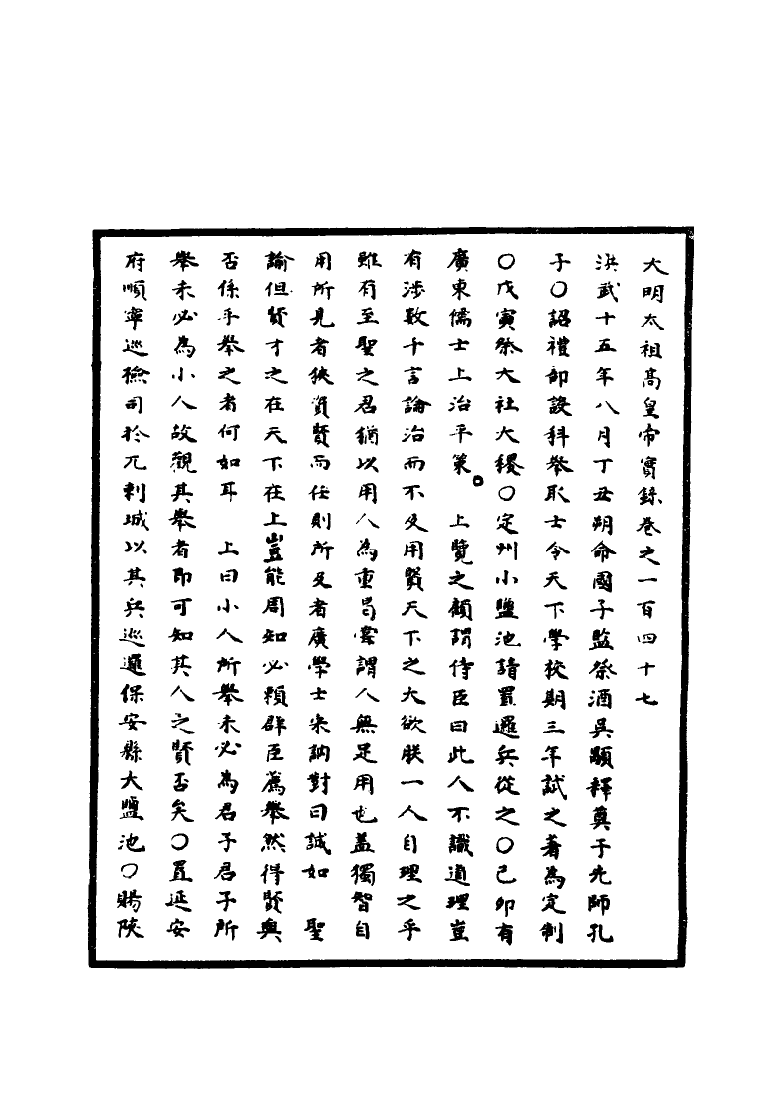 大明太祖高皇帝實錄卷之一百四十七
洪武十五年八月丁丑朔命國子監祭酒吳顒釋奠于先師孔
子○詔禮部設科舉取士令天下學校期三年試之著為定制
○戊寅祭大社大稷○定州小鹽池請置邏兵從之○己卯有
廣東儒士上治平策　上覽之顧謂侍臣曰此人不識道理豈
有涉數千言論治而不及用賢天下之大欲朕一人自理之乎
雖有至聖之君猶以用人為重曷嘗謂人無足用也盖獨智自
用所見者狹資賢而任則所及者廣學士宋訥對曰誠如　聖
諭但賢才之在天下在上豈能周知必賴群臣薦舉然得賢與
否係乎舉之者何如耳　上曰小人所舉未必為君子君子所
舉未必為小人故觀其舉者即可知其人之賢否矣○置延安
府順寧巡檢司於兀剌城以其兵巡邏保安縣大鹽池○賜陝